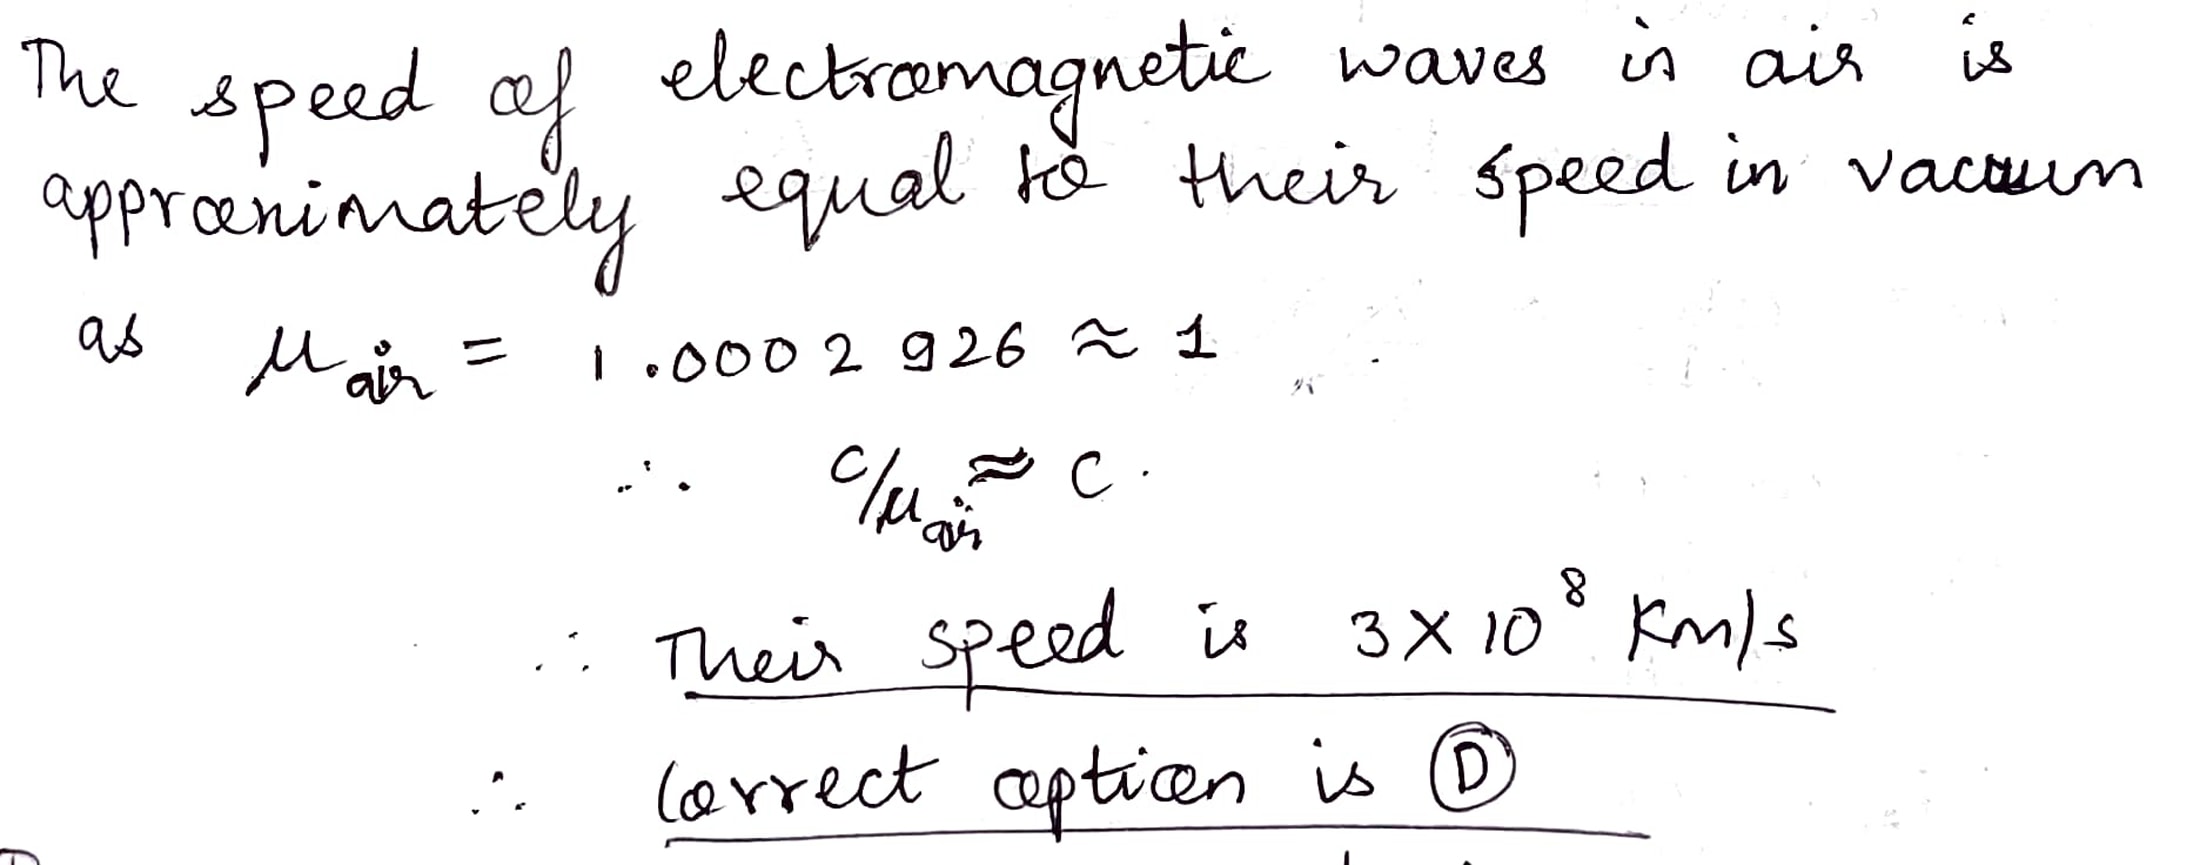 The speed of electromagnetic waves in air is
approximately equal to their speed in vacuum
as μair = 1.0002926 ≈ 1
∴ c/μair ≈ c.
∴ Their speed is 3 × 10⁸ Km/s
∴ Correct option is Ⓓ